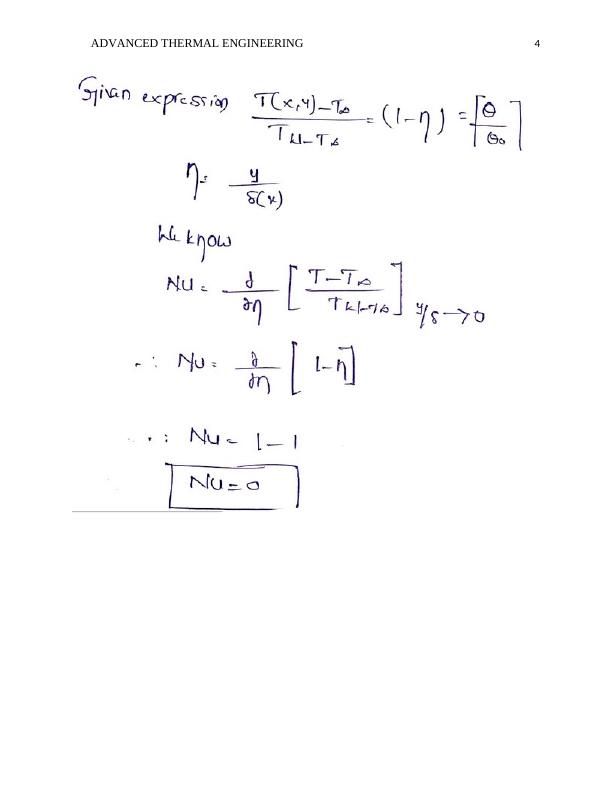 ADVANCED THERMAL ENGINEERING 4
Given expression T(x,y)-T∞ / Tw-T∞ = (1-η) = [θ/θ₀]
η = y/δ(x)
We know
Nu = ∂/∂η [T-T∞ / Tw-T∞] y/δ→0
∴ Nu = ∂/∂η [1-η]
∴ Nu = 1-1
Nu=0